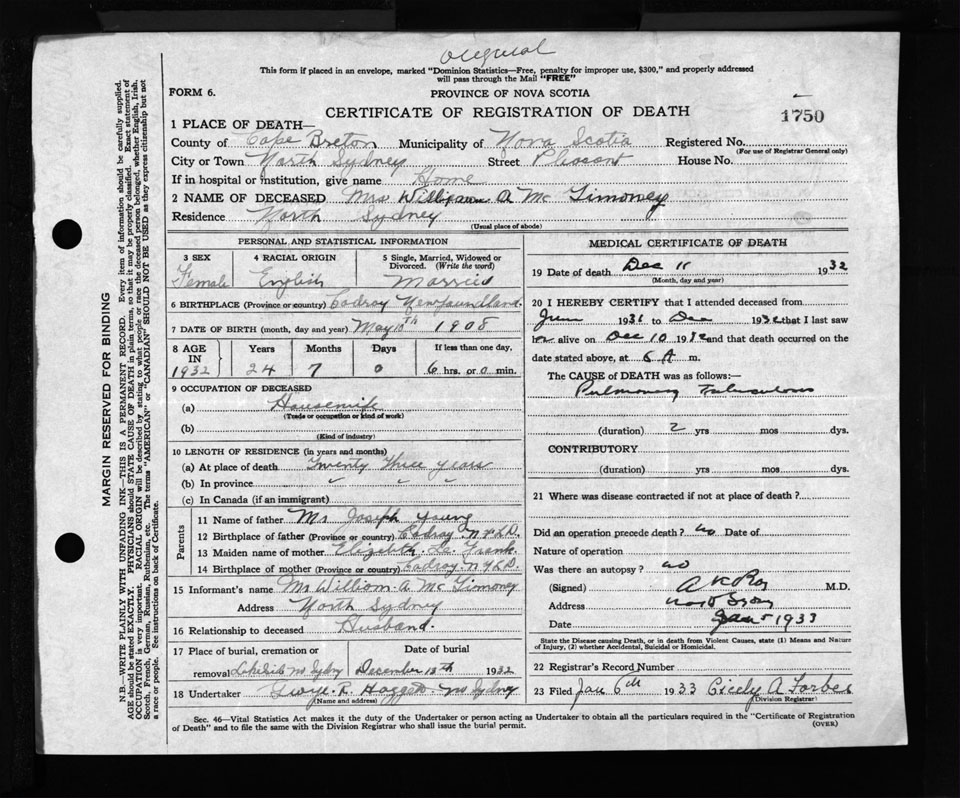 Original
This form if placed in an envelope, marked "Dominion Statistics—Free, penalty for improper use, $300," and properly addressed
will pass through the Mail "FREE"
FORM 6. PROVINCE OF NOVA SCOTIA
CERTIFICATE OF REGISTRATION OF DEATH 1750
1 PLACE OF DEATH—
County of Cape Breton Municipality of Nova Scotia Registered No.
(For use of Registrar General only)
City or Town North Sydney Street Pleasant House No.
If in hospital or institution, give name Home
2 NAME OF DECEASED Mrs William A Mc Timoney
Residence North Sydney
(Usual place of abode)
PERSONAL AND STATISTICAL INFORMATION
3 SEX 4 RACIAL ORIGIN 5 Single, Married, Widowed or Divorced. (Write the word)
Female English Married
6 BIRTHPLACE (Province or country) Codroy Newfoundland.
7 DATE OF BIRTH (month, day and year) May 10th 1908
8 AGE IN 1932 Years Months Days If less than one day,
24 7 0 6 hrs. or 0 min.
9 OCCUPATION OF DECEASED
(a) Housewife
(Trade or occupation or kind of work)
(b)
(Kind of industry)
10 LENGTH OF RESIDENCE (in years and months)
(a) At place of death Twenty Three years
(b) In province " " "
(c) In Canada (if an immigrant)
Parents
11 Name of father Mr Joseph Young
12 Birthplace of father (Province or country) Codroy N.F.L.D.
13 Maiden name of mother Elizabeth Le Frank.
14 Birthplace of mother (Province or country) Codroy N.F.L.D.
15 Informant's name Mr William A. Mc Timoney
Address North Sydney
16 Relationship to deceased Husband.
17 Place of burial, cremation or removal Date of burial
Lakeside No Sydney December 13th 1932
18 Undertaker R. No Sydney
(Name and address)
MEDICAL CERTIFICATE OF DEATH
19 Date of death Dec 11 1932
(Month, day and year)
20 I HEREBY CERTIFY that I attended deceased from
June 1931 to Dec 1932 that I last saw
her alive on Dec 10 1932 and that death occurred on the
date stated above, at 6 A m.
The CAUSE of DEATH was as follows:—
Pulmonary Tuberculosis
(duration) 2 yrs mos dys.
CONTRIBUTORY
(duration) yrs mos dys.
21 Where was disease contracted if not at place of death?
Did an operation precede death? no Date of
Nature of operation
Was there an autopsy? no
(Signed) M.D.
Address North Sydney
Date Jan 1933
State the Disease causing Death, or in death from Violent Causes, state (1) Means and Nature
of Injury, (2) whether Accidental, Suicidal or Homicidal.
22 Registrar's Record Number
23 Filed Jan 6th 1933 Cicely A Forbes
(Division Registrar)
Sec. 46—Vital Statistics Act makes it the duty of the Undertaker or person acting as Undertaker to obtain all the particulars required in the "Certificate of Registration
of Death" and to file the same with the Division Registrar who shall issue the burial permit. (OVER)
MARGIN RESERVED FOR BINDING
N.B.—WRITE PLAINLY WITH UNFADING INK—THIS IS A PERMANENT RECORD. Every item of information should be carefully supplied.
AGE should be stated EXACTLY. PHYSICIANS should STATE CAUSE OF DEATH in plain terms, so that it may be properly classified. Exact statement of
OCCUPATION is very important. RACIAL ORIGIN will be described by stating to what people or race the deceased person belonged, whether English, Irish,
Scotch, French, German, Russian, Ruthenian, etc. The terms "AMERICAN" or "CANADIAN" SHOULD NOT BE USED as they express citizenship but not
a race or people. See instructions on back of Certificate.